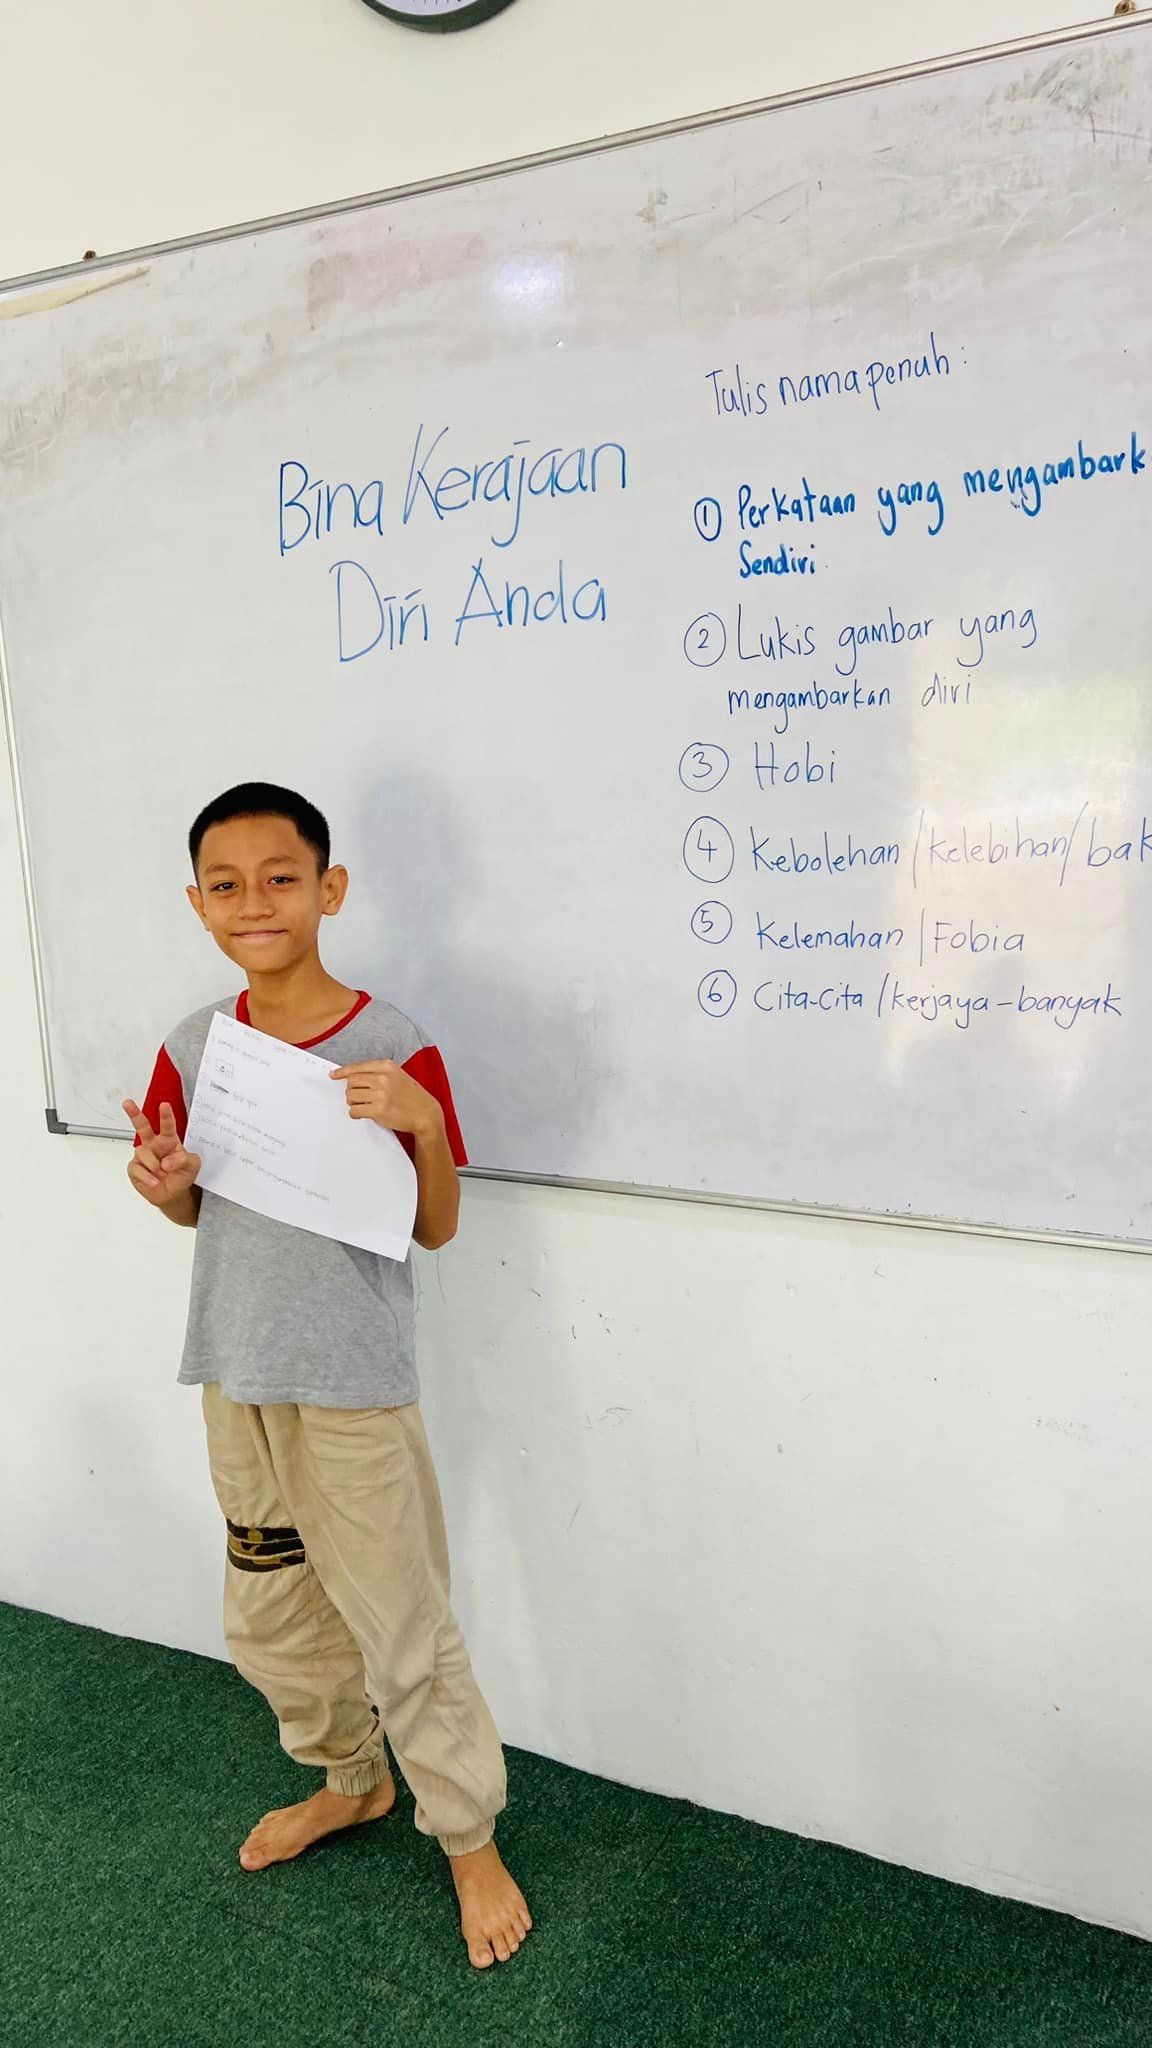 Bina Kerajaan
Diri Anda
Tulis nama penuh:
① Perkataan yang mengambark
Sendiri
② Lukis gambar yang
mengambarkan diri
③ Hobi
④ Kebolehan/kelebihan/bak
⑤ Kelemahan/Fobia
⑥ Cita-Cita/kerjaya-banyak